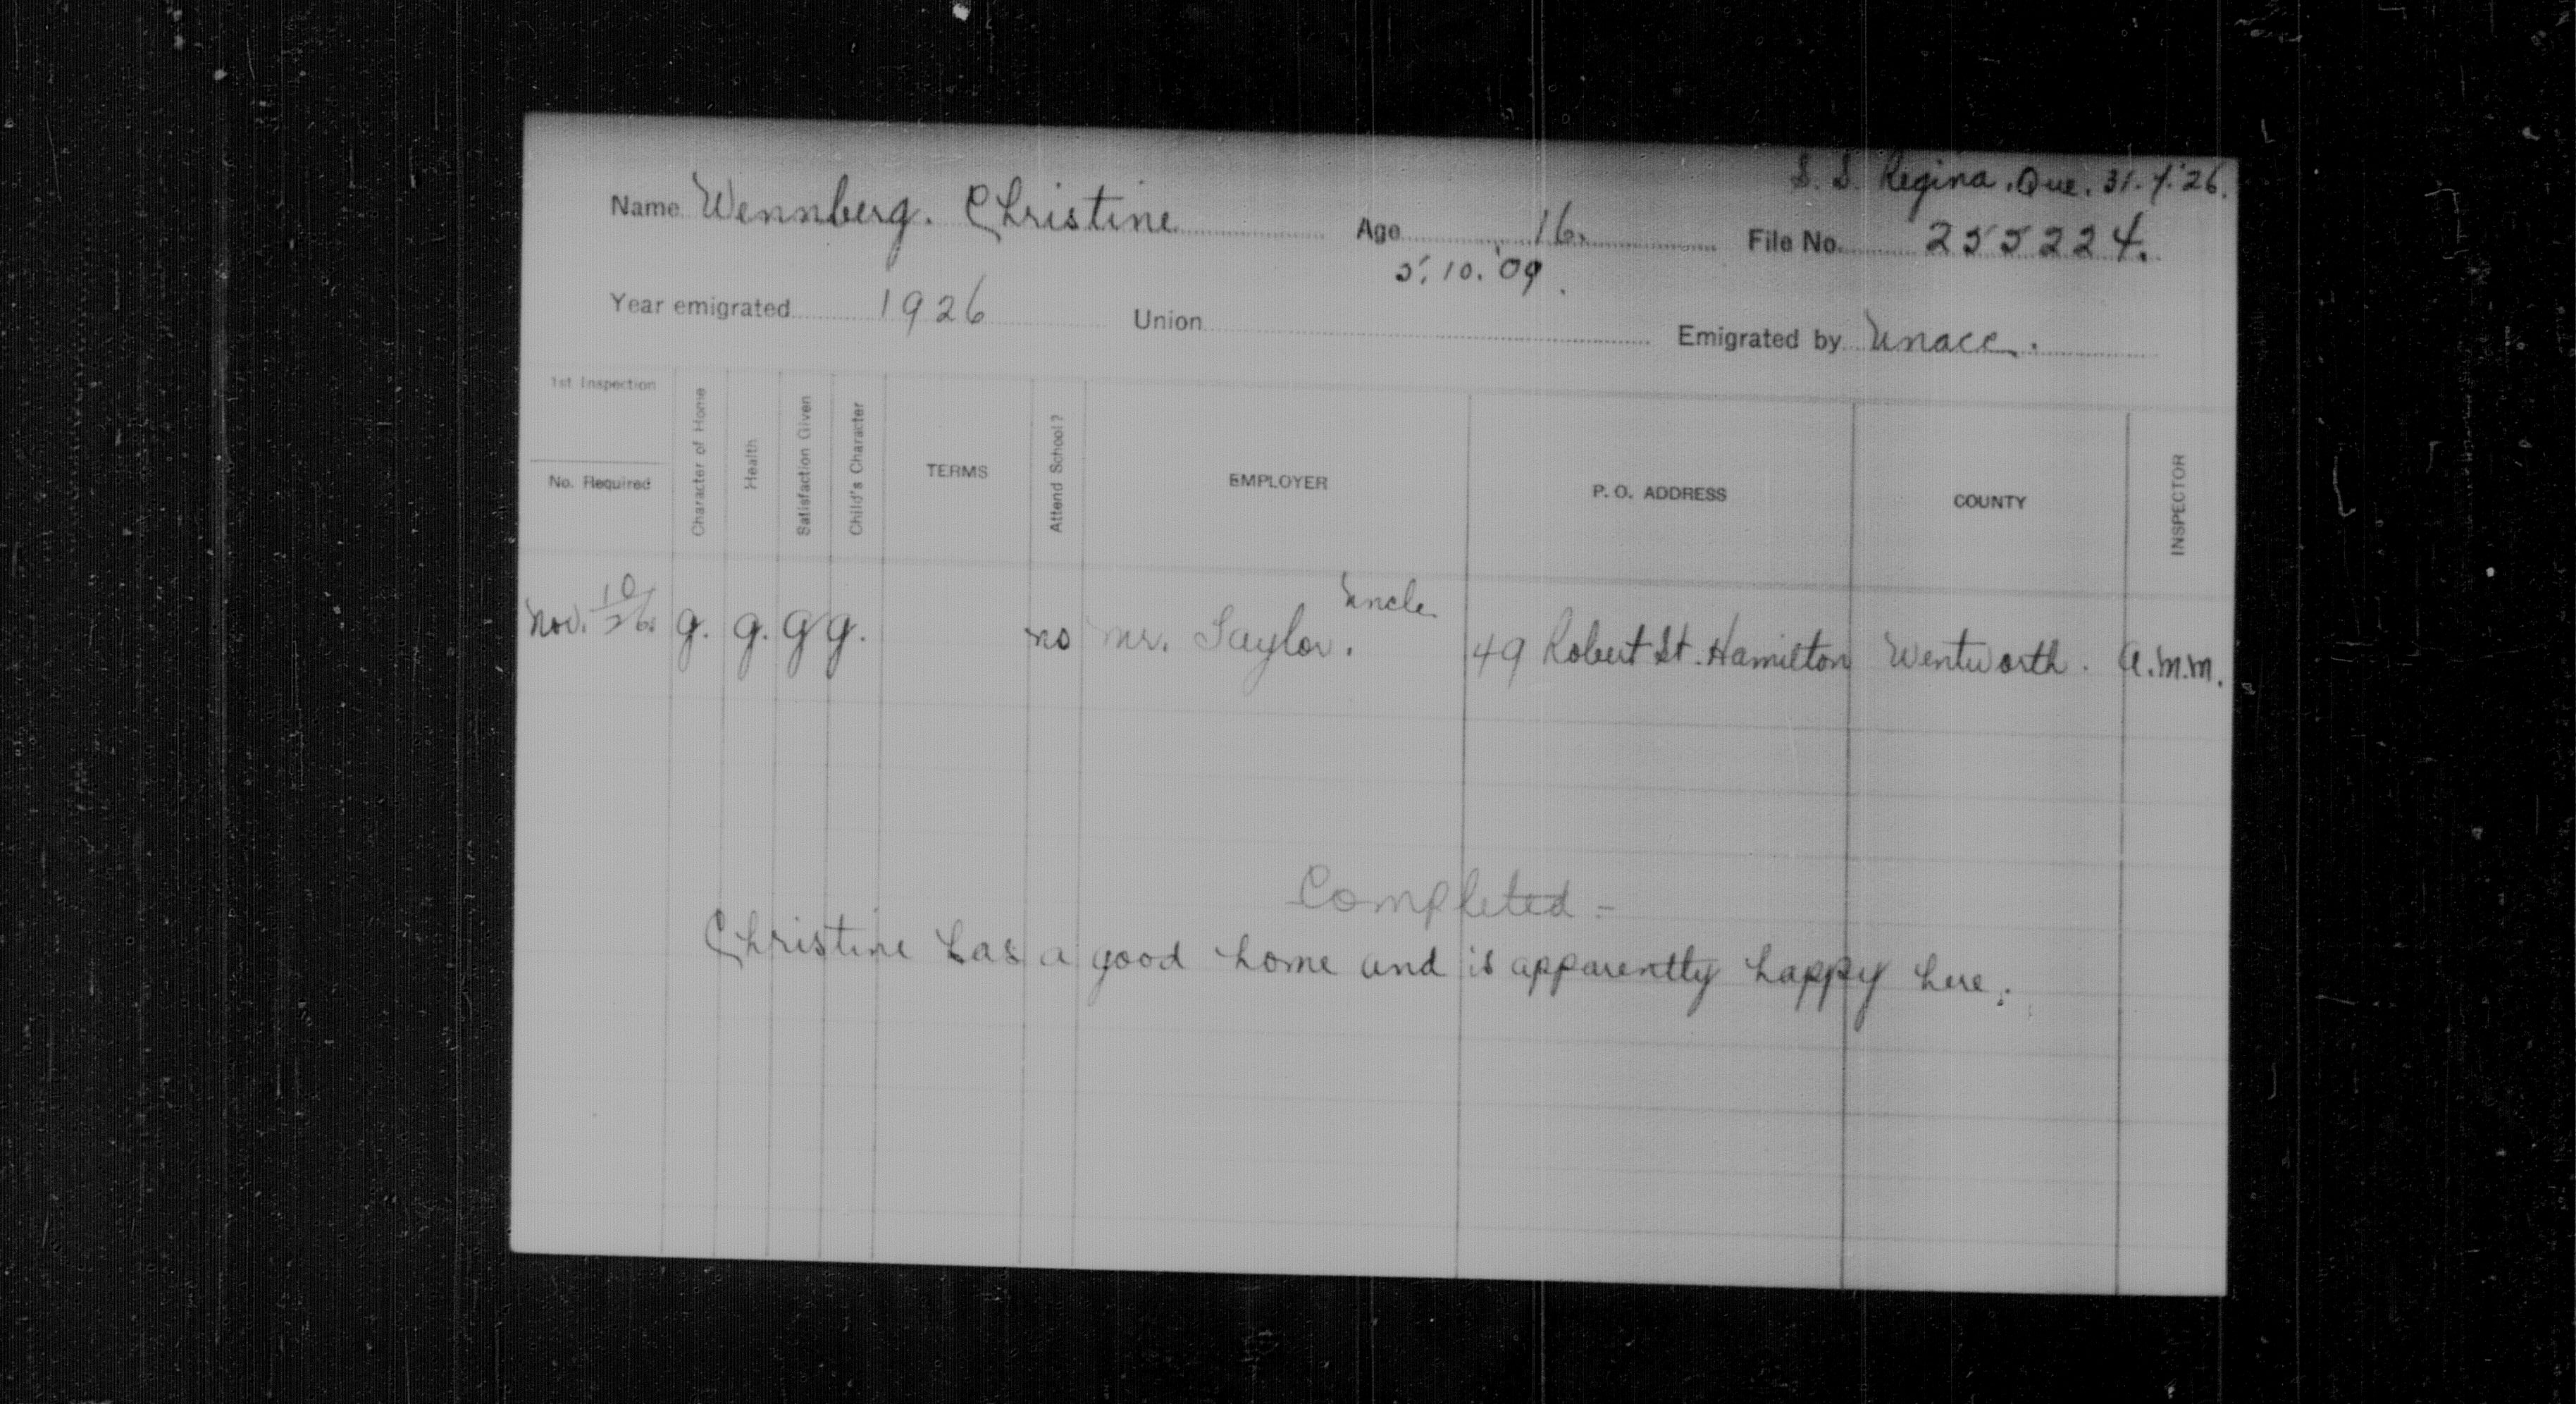 S. S. Regina. Que. 31.7.'26.
Name Wennberg. Christine Age 16. File No. 255224.
5.10.'09.
Year emigrated 1926 Union Emigrated by Unacc.
1st Inspection
No. Required
Character of Home
Health
Satisfaction Given
Child's Character
TERMS
Attend School?
EMPLOYER
P. O. ADDRESS
COUNTY
INSPECTOR
Nov. 10/26. g. g. g g. no Mr. Taylor. Uncle 49 Robert St. Hamilton Wentworth. A.M.M.
Completed -
Christine has a good home and is apparently happy here.